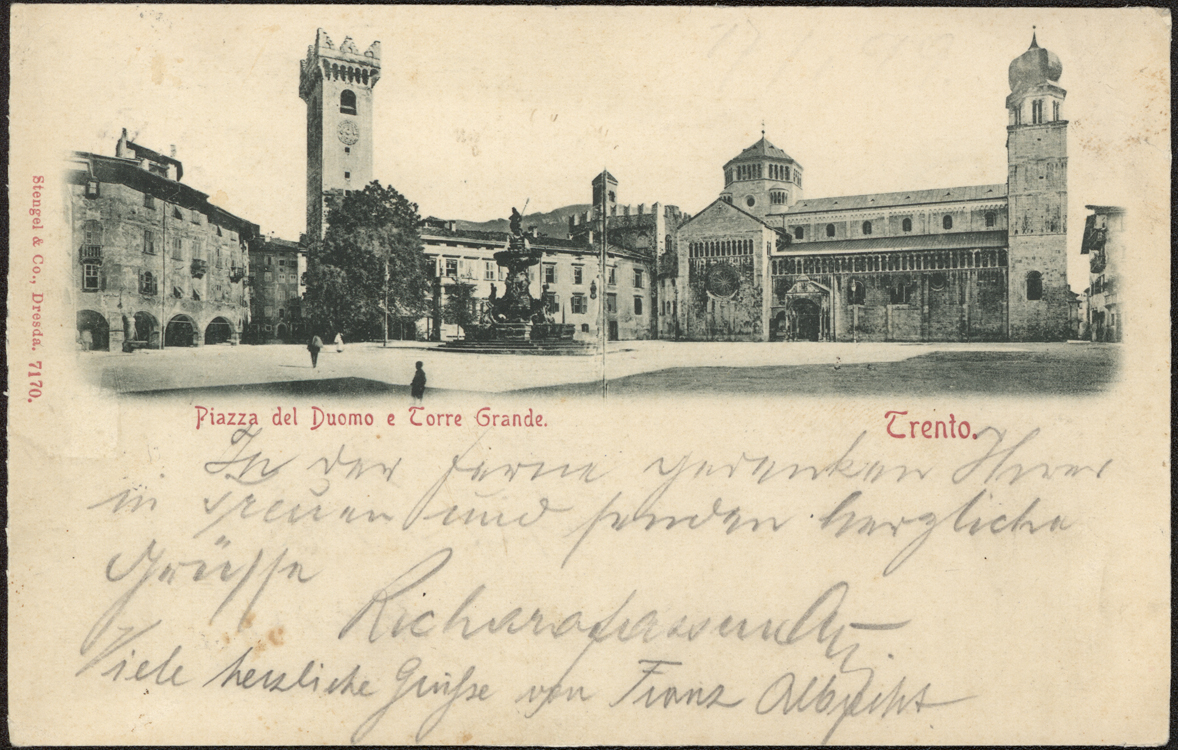 Stengel & Co., Dresda. 7170.
Piazza del Duomo e Torre Grande.
Trento.
In der Ferne gedenken Ihrer
in treuen und senden herzliche
Grüsse
Richard
Viele herzliche Grüsse von Franz Albrecht